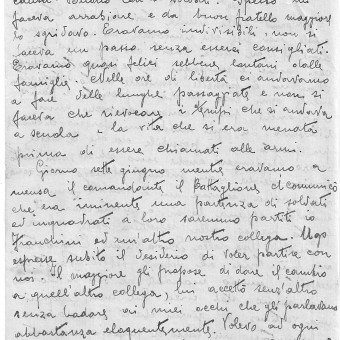 faceva arrabbiare e da buon fratello maggiore
lo sgridavo. Eravamo indivisibili, non si
faceva un passo senza essersi consigliati.
Eravamo quasi felici sebbene lontani dalle
famiglie. Nelle ore di libertà ci andavamo
a fare delle lunghe passeggiate e non si
faceva che rievocare i tempi che si andava
a scuola e la vita che si era menata
prima di essere chiamati alle armi.
Giorno sette giugno mentre eravamo a
mensa il comandante il Battaglione ci comunicò
che era imminente una partenza di soldati
ed inquadrati a loro saremmo partiti io
Franchini ed un'altro nostro collega. Ugo
espresse subito il desiderio di voler partire con
noi. Il maggiore gli propose di dare il cambio
a quell'altro collega, lui accettò senz'altro
senza badare ai miei occhi che gli parlavano
abbastanza eloquentemente. Volevo ad ogni